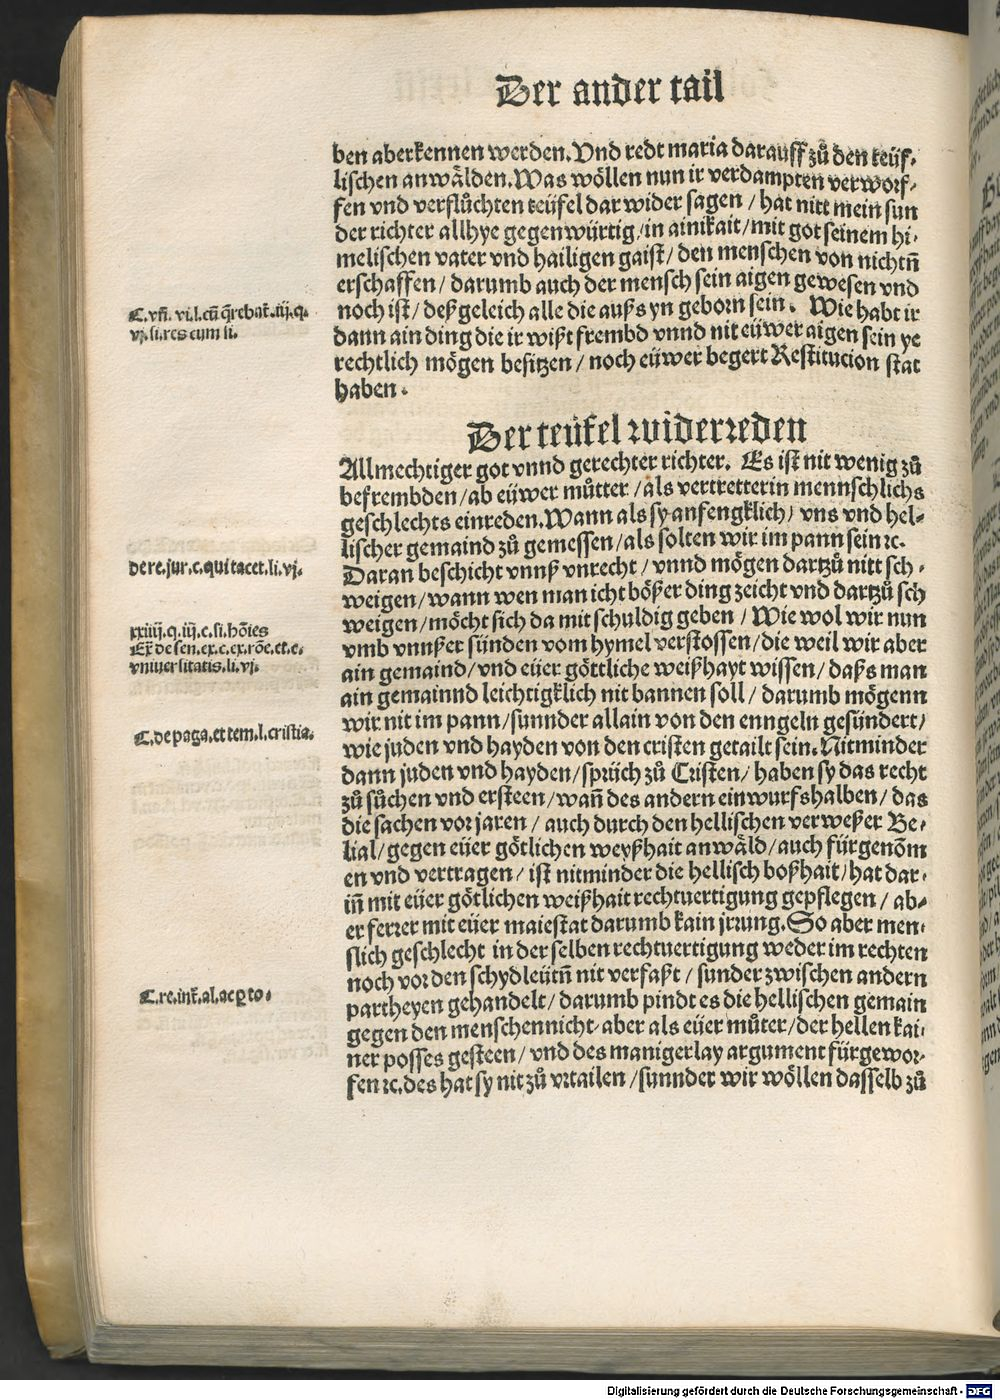 Der ander tail
ben aberkennen werden. Vnd redt maria darauff zů den teüf,
lischen anwålden. Was wöllen nun ir verdampten verworf,
fen vnd verflůchten teüfel dar wider sagen / hat nitt mein sun
der richter allhye gegenwürtig / in ainikait / mit got seinem hi,
melischen vater vnd hailigen gaist / den menschen von nichtñ
erschaffen / darumb auch der mensch sein aigen gewesen vnd
noch ist / deßgeleich alle die außs yn geborn sein. Wie habt ir
dann ain ding die ir wißt frembd vnnd nit eüwer aigen sein ye
rechtlich mögen besitzen / noch eüwer begert Restitucion stat
haben.
C. vñ. vi. l. cũ q̃rebat̃. iij. q.
vj. si. res cum si.
Der teüfel widerreden
Allmechtiger got vnnd gerechter richter. Es ist nit wenig zů
befrembden / ab eüwer můtter / als vertretterin mennschlichs
geschlechts einreden. Wann als sy anfengklich / vns vnd hel-
lischer gemaind zů gemessen / als solten wir im pann sein ꝛc.
Daran beschicht vnnß vnrecht / vnnd mögen dartzů nitt sch,
weigen / wann wen man icht bößer ding zeicht vnd dartzů sch
weigen / möcht sich da mit schuldig geben / Wie wol wir nun
vmb vnnßer sünden vom hymel verstossen / die weil wir aber
ain gemaind / vnd eüer göttliche weißhayt wissen / daßs man
ain gemainnd leichtigklich nit bannen soll / darumb mögenn
wir nit im pann / sunnder allain von den enngeln gesündert /
wie juden vnd hayden von den cristen getailt sein. Nitminder
dann juden vnd hayden / sprüch zů Cristen / haben sy das recht
zů sůchen vnd ersteen / wañ des andern einwurfs halben / das
die sachen vor jaren / auch durch den hellischen verweßer Be,
lial / gegen eüer götlichen weyßhait anwåld / auch fürgenõm
en vnd vertragen / ist nitminder die hellisch boßhait / hat dar,
iñ mit eüer götlichen weißhait rechtuertigung gepflegen / ab-
er ferrer mit eüer maiestat darumb kain jrrung. So aber men,
slich geschlecht in der selben rechtuertigung weder im rechten
noch vor den schydleütñ nit verfaßt / sunder zwischen andern
partheyen gehandelt / darumb pindt es die hellischen gemain
gegen den menschen nicht, aber als eüer můter / der hellen kai,
ner posses gesteen / vnd des manigerlay argument fürgewor,
fen ꝛc. des hat sy nit zů vrtailen / sunnder wir wöllen dasselb zů
de re. jur. c. qui tacet. li. vj.
xxiiij. q. iij. c. si. hõies
Ex̃ de sen. ex. c. ex. rõe. et. c.
vniuersitatis. li. vj.
C. de paga. et tem. l. cristia.
C. re. inẽ. al. acꝑto.
Digitalisierung gefördert durch die Deutsche Forschungsgemeinschaft - DFG